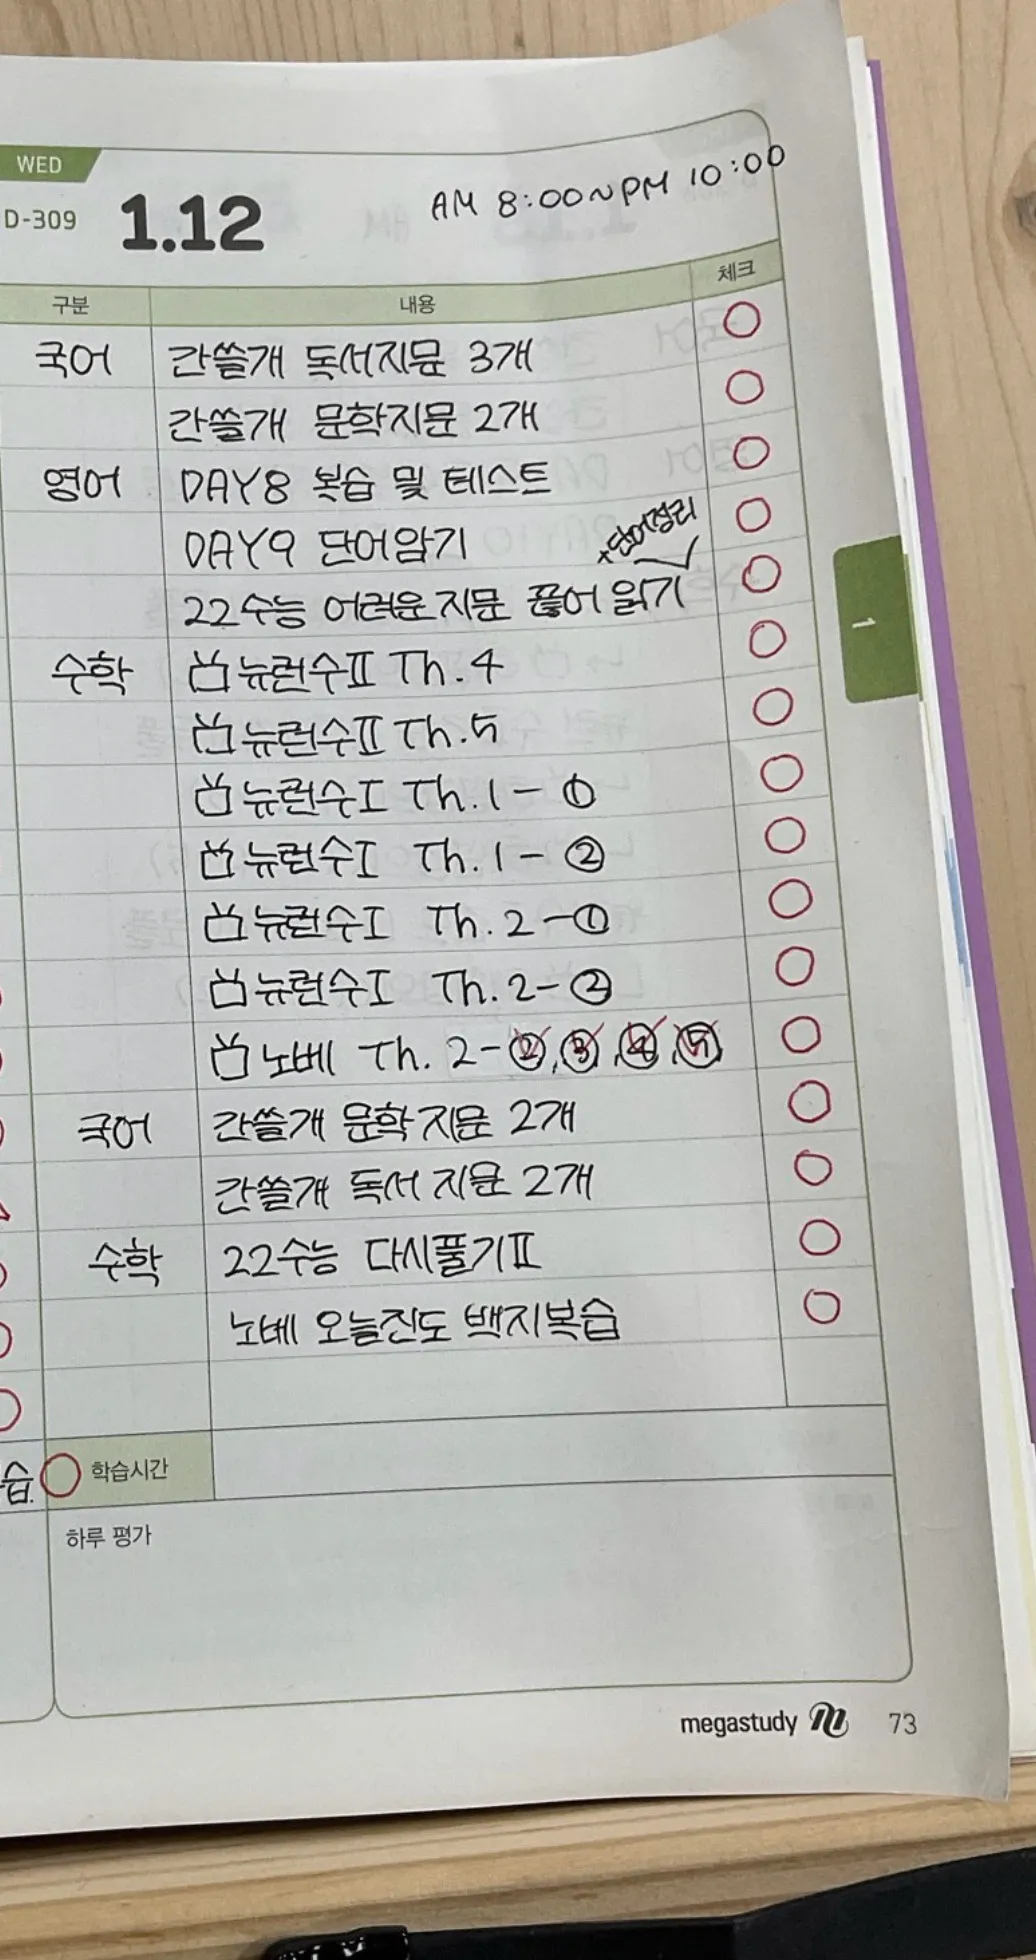 WED
D-309 1.12 AM 8:00~PM 10:00
구분 내용 체크
국어 간쓸개 독서지문 3개
간쓸개 문학지문 2개
영어 DAY8 복습 및 테스트
DAY9 단어암기
*단어정리
22수능 어려운지문 끊어 읽기
수학 뉴런수Ⅱ Th.4
뉴런수Ⅱ Th.5
뉴런수Ⅰ Th.1-①
뉴런수Ⅰ Th.1-②
뉴런수Ⅰ Th.2-①
뉴런수Ⅰ Th.2-②
노베 Th.2-②,③,④,⑤
국어 간쓸개 문학지문 2개
간쓸개 독서지문 2개
수학 22수능 다시풀기Ⅱ
노베 오늘진도 백지복습
습. 학습시간
하루 평가
1
megastudy 73